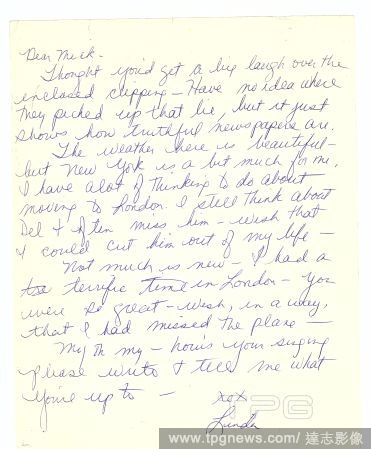 Dear Mick -
Thought you'd get a big laugh over the
enclosed clipping - Have no idea where
they picked up that lie, but it just
shows how truthful newspapers are.
The weather here is beautiful -
but New York is a bit much for me,
I have alot of thinking to do about
moving to London. I still think about
Del & often miss him - wish that
I could cut him out of my life -
Not much is new - I had a
terrific time in London - you
were so great - wish, in a way,
that I had missed the plane -
My oh my - how's your singing
please write & tell me what
you're up to -
xox
Linda
TPG
www.tpgnews.com/達志影像